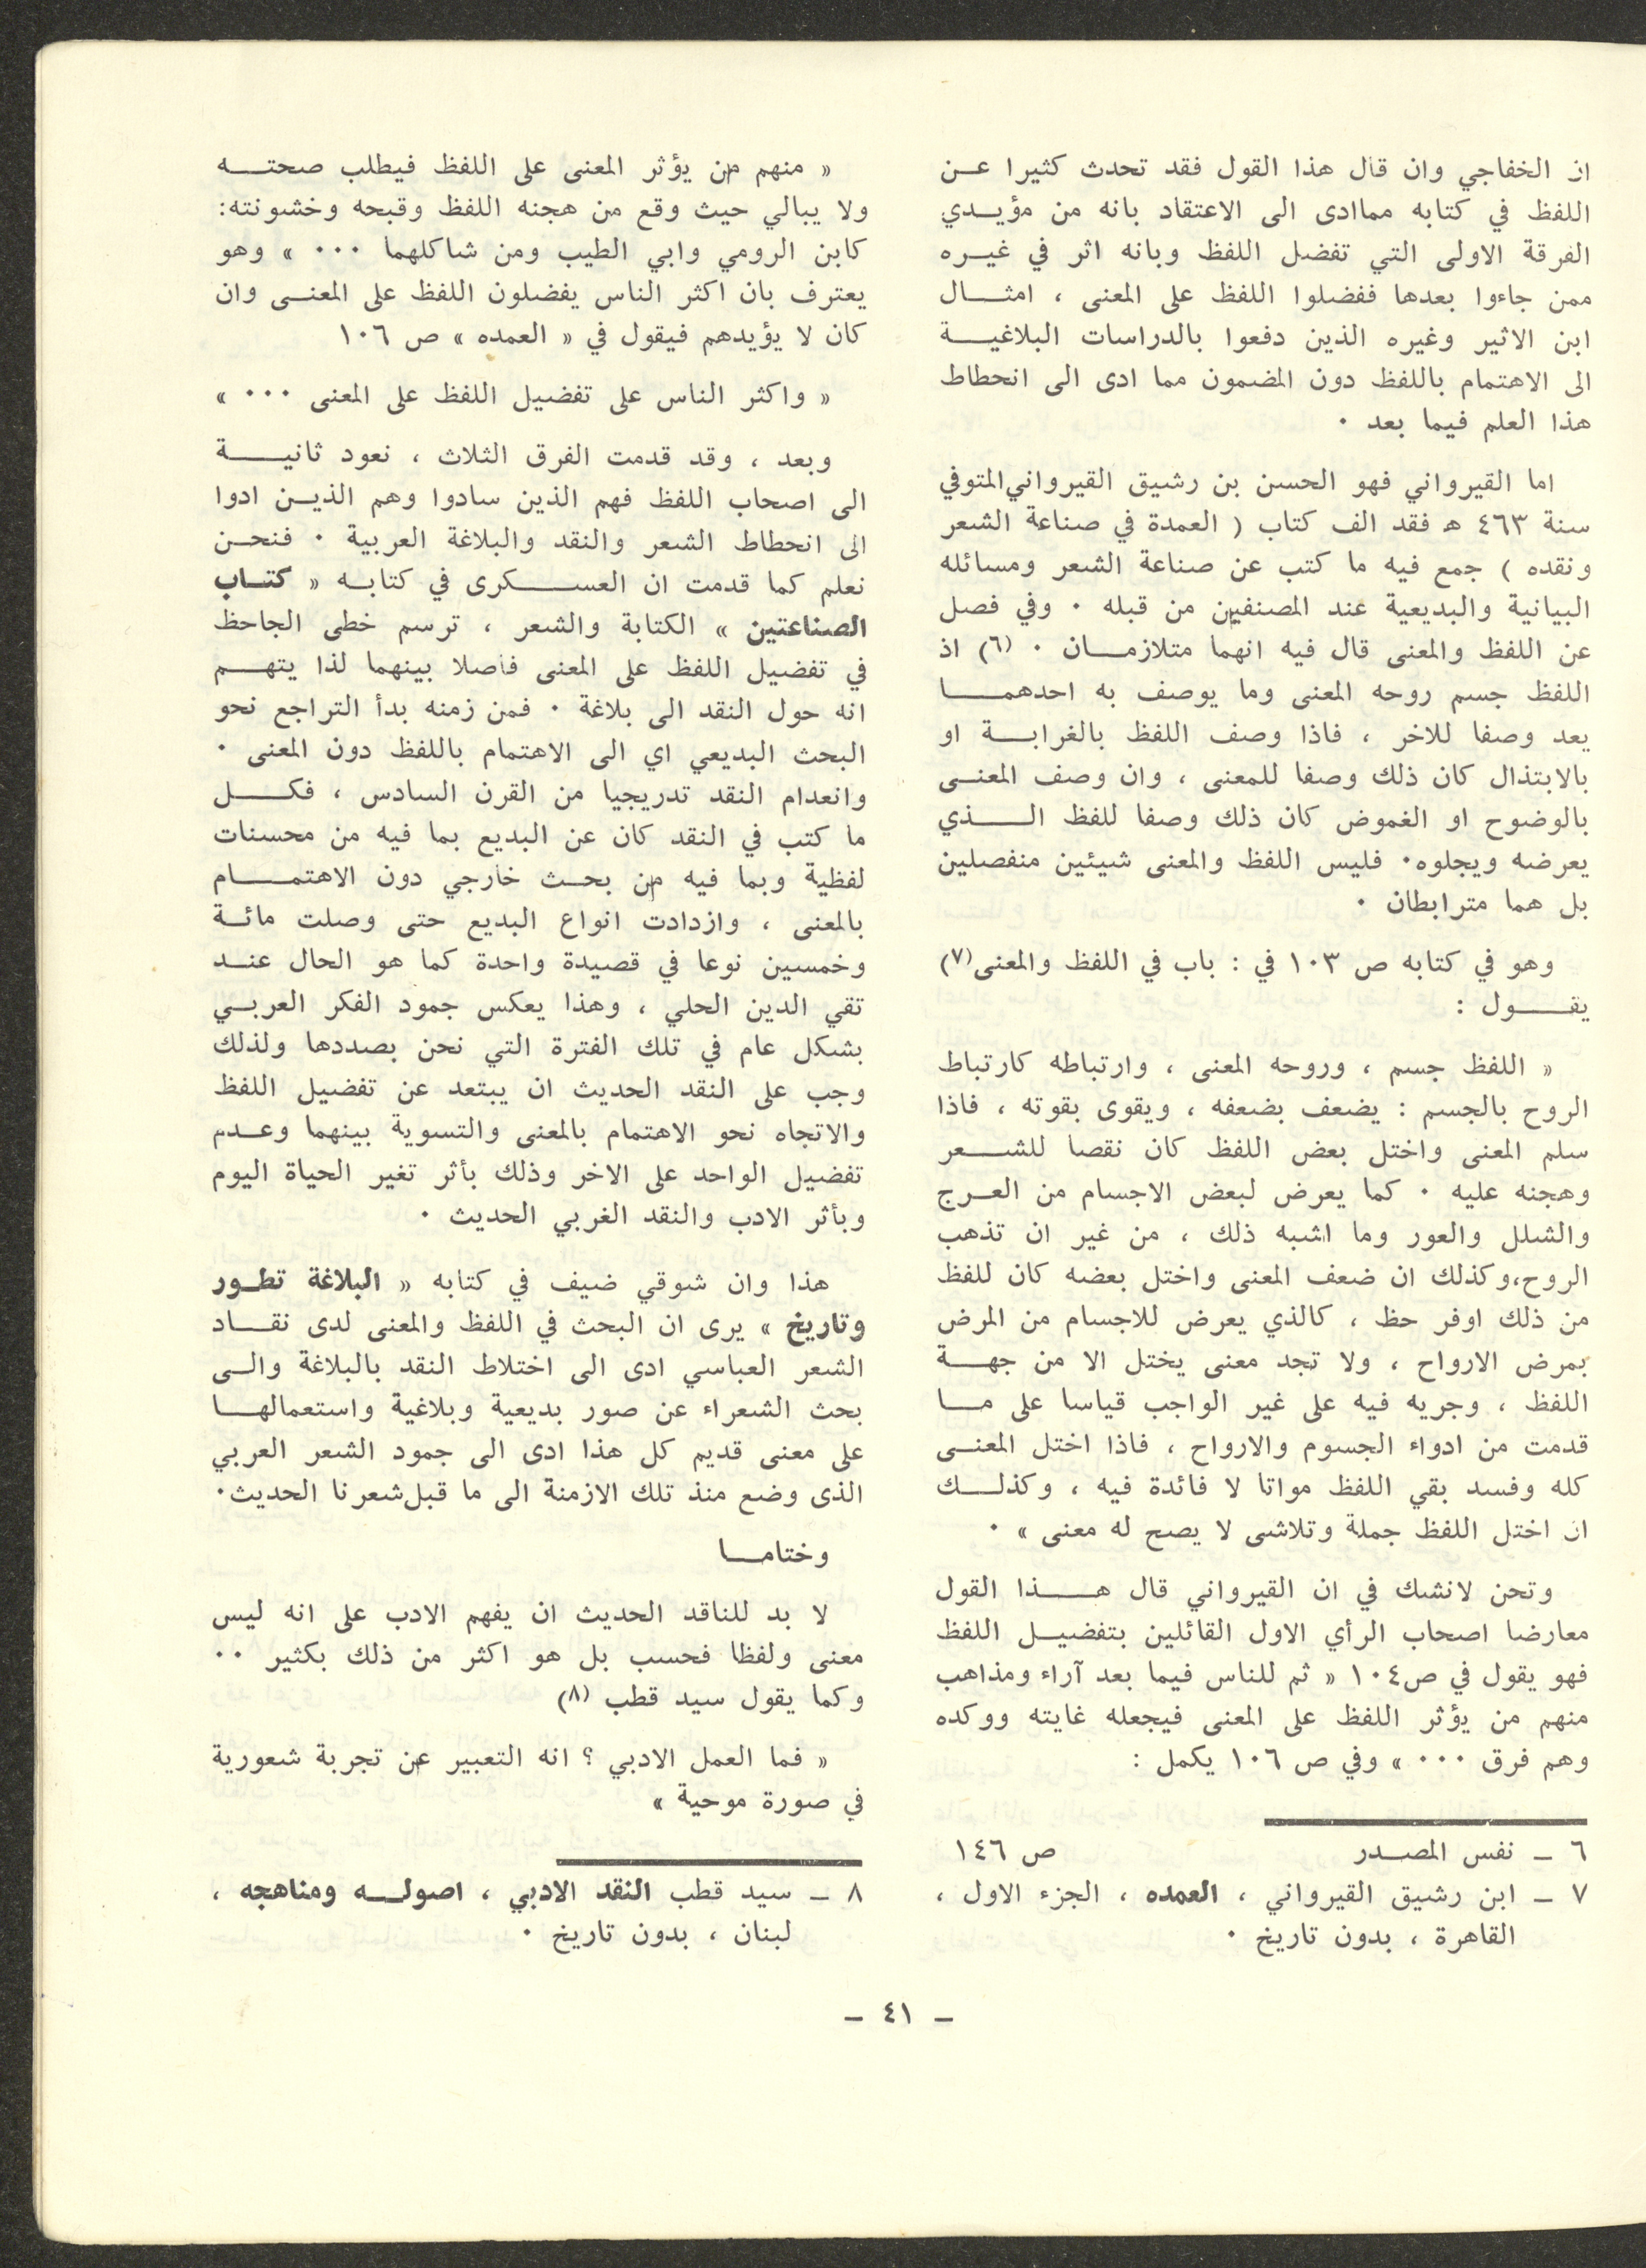 ان الخفاجي وان قال هذا القول فقد تحدث كثيرا عن
اللفظ في كتابه مماادى الى الاعتقاد بانه من مؤيدي
الفرقة الاولى التي تفضل اللفظ وبانه اثر في غيره
ممن جاءوا بعدها ففضلوا اللفظ على المعنى ، امثال
ابن الاثير وغيره الذين دفعوا بالدراسات البلاغية
الى الاهتمام باللفظ دون المضمون مما ادى الى انحطاط
هذا العلم فيما بعد ٠
اما القيرواني فهو الحسن بن رشيق القيرواني المتوفي
سنة ٤٦٣ هـ فقد الف كتاب ( العمدة في صناعة الشعر
ونقده ) جمع فيه ما كتب عن صناعة الشعر ومسائله
البيانية والبديعية عند المصنفين من قبله ٠ وفي فصل
عن اللفظ والمعنى قال فيه انهما متلازمان ٠ (٦) اذ
اللفظ جسم روحه المعنى وما يوصف به احدهما
يعد وصفا للاخر ، فاذا وصف اللفظ بالغرابة او
بالابتذال كان ذلك وصفا للمعنى ، وان وصف المعنى
بالوضوح او الغموض كان ذلك وصفا للفظ الذي
يعرضه ويجلوه٠ فليس اللفظ والمعنى شيئين منفصلين
بل هما مترابطان ٠
وهو في كتابه ص ١٠٣ في : باب في اللفظ والمعنى(٧)
يقول :
« اللفظ جسم ، وروحه المعنى ، وارتباطه كارتباط
الروح بالجسم : يضعف بضعفه ، ويقوى بقوته ، فاذا
سلم المعنى واختل بعض اللفظ كان نقصا للشعر
وهجنه عليه ٠ كما يعرض لبعض الاجسام من العرج
والشلل والعور وما اشبه ذلك ، من غير ان تذهب
الروح،وكذلك ان ضعف المعنى واختل بعضه كان للفظ
من ذلك اوفر حظ ، كالذي يعرض للاجسام من المرض
بمرض الارواح ، ولا تجد معنى يختل الا من جهة
اللفظ ، وجريه فيه على غير الواجب قياسا على ما
قدمت من ادواء الجسوم والارواح ، فاذا اختل المعنى
كله وفسد بقي اللفظ مواتا لا فائدة فيه ، وكذلك
ان اختل اللفظ جملة وتلاشى لا يصح له معنى » ٠
وتحن لانشك في ان القيرواني قال هذا القول
معارضا اصحاب الرأي الاول القائلين بتفضيل اللفظ
فهو يقول في ص١٠٤ « ثم للناس فيما بعد آراء ومذاهب
منهم من يؤثر اللفظ على المعنى فيجعله غايته ووكده
وهم فرق ٠٠٠ » وفي ص ١٠٦ يكمل :
٦ ـ نفس المصدر ص ١٤٦
٧ ـ ابن رشيق القيرواني ، العمده ، الجزء الاول ،
القاهرة ، بدون تاريخ ٠
« منهم من يؤثر المعنى على اللفظ فيطلب صحته
ولا يبالي حيث وقع من هجنه اللفظ وقبحه وخشونته:
كابن الرومي وابي الطيب ومن شاكلهما ٠٠٠ » وهو
يعترف بان اكثر الناس يفضلون اللفظ على المعنى وان
كان لا يؤيدهم فيقول في « العمده » ص ١٠٦
« واكثر الناس على تفضيل اللفظ على المعنى ٠٠٠ »
وبعد ، وقد قدمت الفرق الثلاث ، نعود ثانية
الى اصحاب اللفظ فهم الذين سادوا وهم الذين ادوا
الى انحطاط الشعر والنقد والبلاغة العربية ٠ فنحن
نعلم كما قدمت ان العسكرى في كتابه « كتاب
الصناعتين » الكتابة والشعر ، ترسم خطى الجاحظ
في تفضيل اللفظ على المعنى فاصلا بينهما لذا يتهم
انه حول النقد الى بلاغة ٠ فمن زمنه بدأ التراجع نحو
البحث البديعي اي الى الاهتمام باللفظ دون المعنى ٠
وانعدام النقد تدريجيا من القرن السادس ، فكل
ما كتب في النقد كان عن البديع بما فيه من محسنات
لفظية وبما فيه من بحث خارجي دون الاهتمام
بالمعنى ، وازدادت انواع البديع حتى وصلت مائة
وخمسين نوعا في قصيدة واحدة كما هو الحال عند
تقي الدين الحلي ، وهذا يعكس جمود الفكر العربي
بشكل عام في تلك الفترة التي نحن بصددها ولذلك
وجب على النقد الحديث ان يبتعد عن تفضيل اللفظ
والاتجاه نحو الاهتمام بالمعنى والتسوية بينهما وعدم
تفضيل الواحد على الاخر وذلك بأثر تغير الحياة اليوم
وبأثر الادب والنقد الغربي الحديث ٠
هذا وان شوقي ضيف في كتابه « البلاغة تطور
وتاريخ » يرى ان البحث في اللفظ والمعنى لدى نقاد
الشعر العباسي ادى الى اختلاط النقد بالبلاغة والى
بحث الشعراء عن صور بديعية وبلاغية واستعمالها
على معنى قديم كل هذا ادى الى جمود الشعر العربي
الذى وضع منذ تلك الازمنة الى ما قبل شعرنا الحديث٠
وختاما
لا بد للناقد الحديث ان يفهم الادب على انه ليس
معنى ولفظا فحسب بل هو اكثر من ذلك بكثير ٠٠
وكما يقول سيد قطب (٨)
« فما العمل الادبي ؟ انه التعبير عن تجربة شعورية
في صورة موحية »
٨ ـ سيد قطب النقد الادبي ، اصوله ومناهجه ،
لبنان ، بدون تاريخ ٠
ـ ٤١ ـ